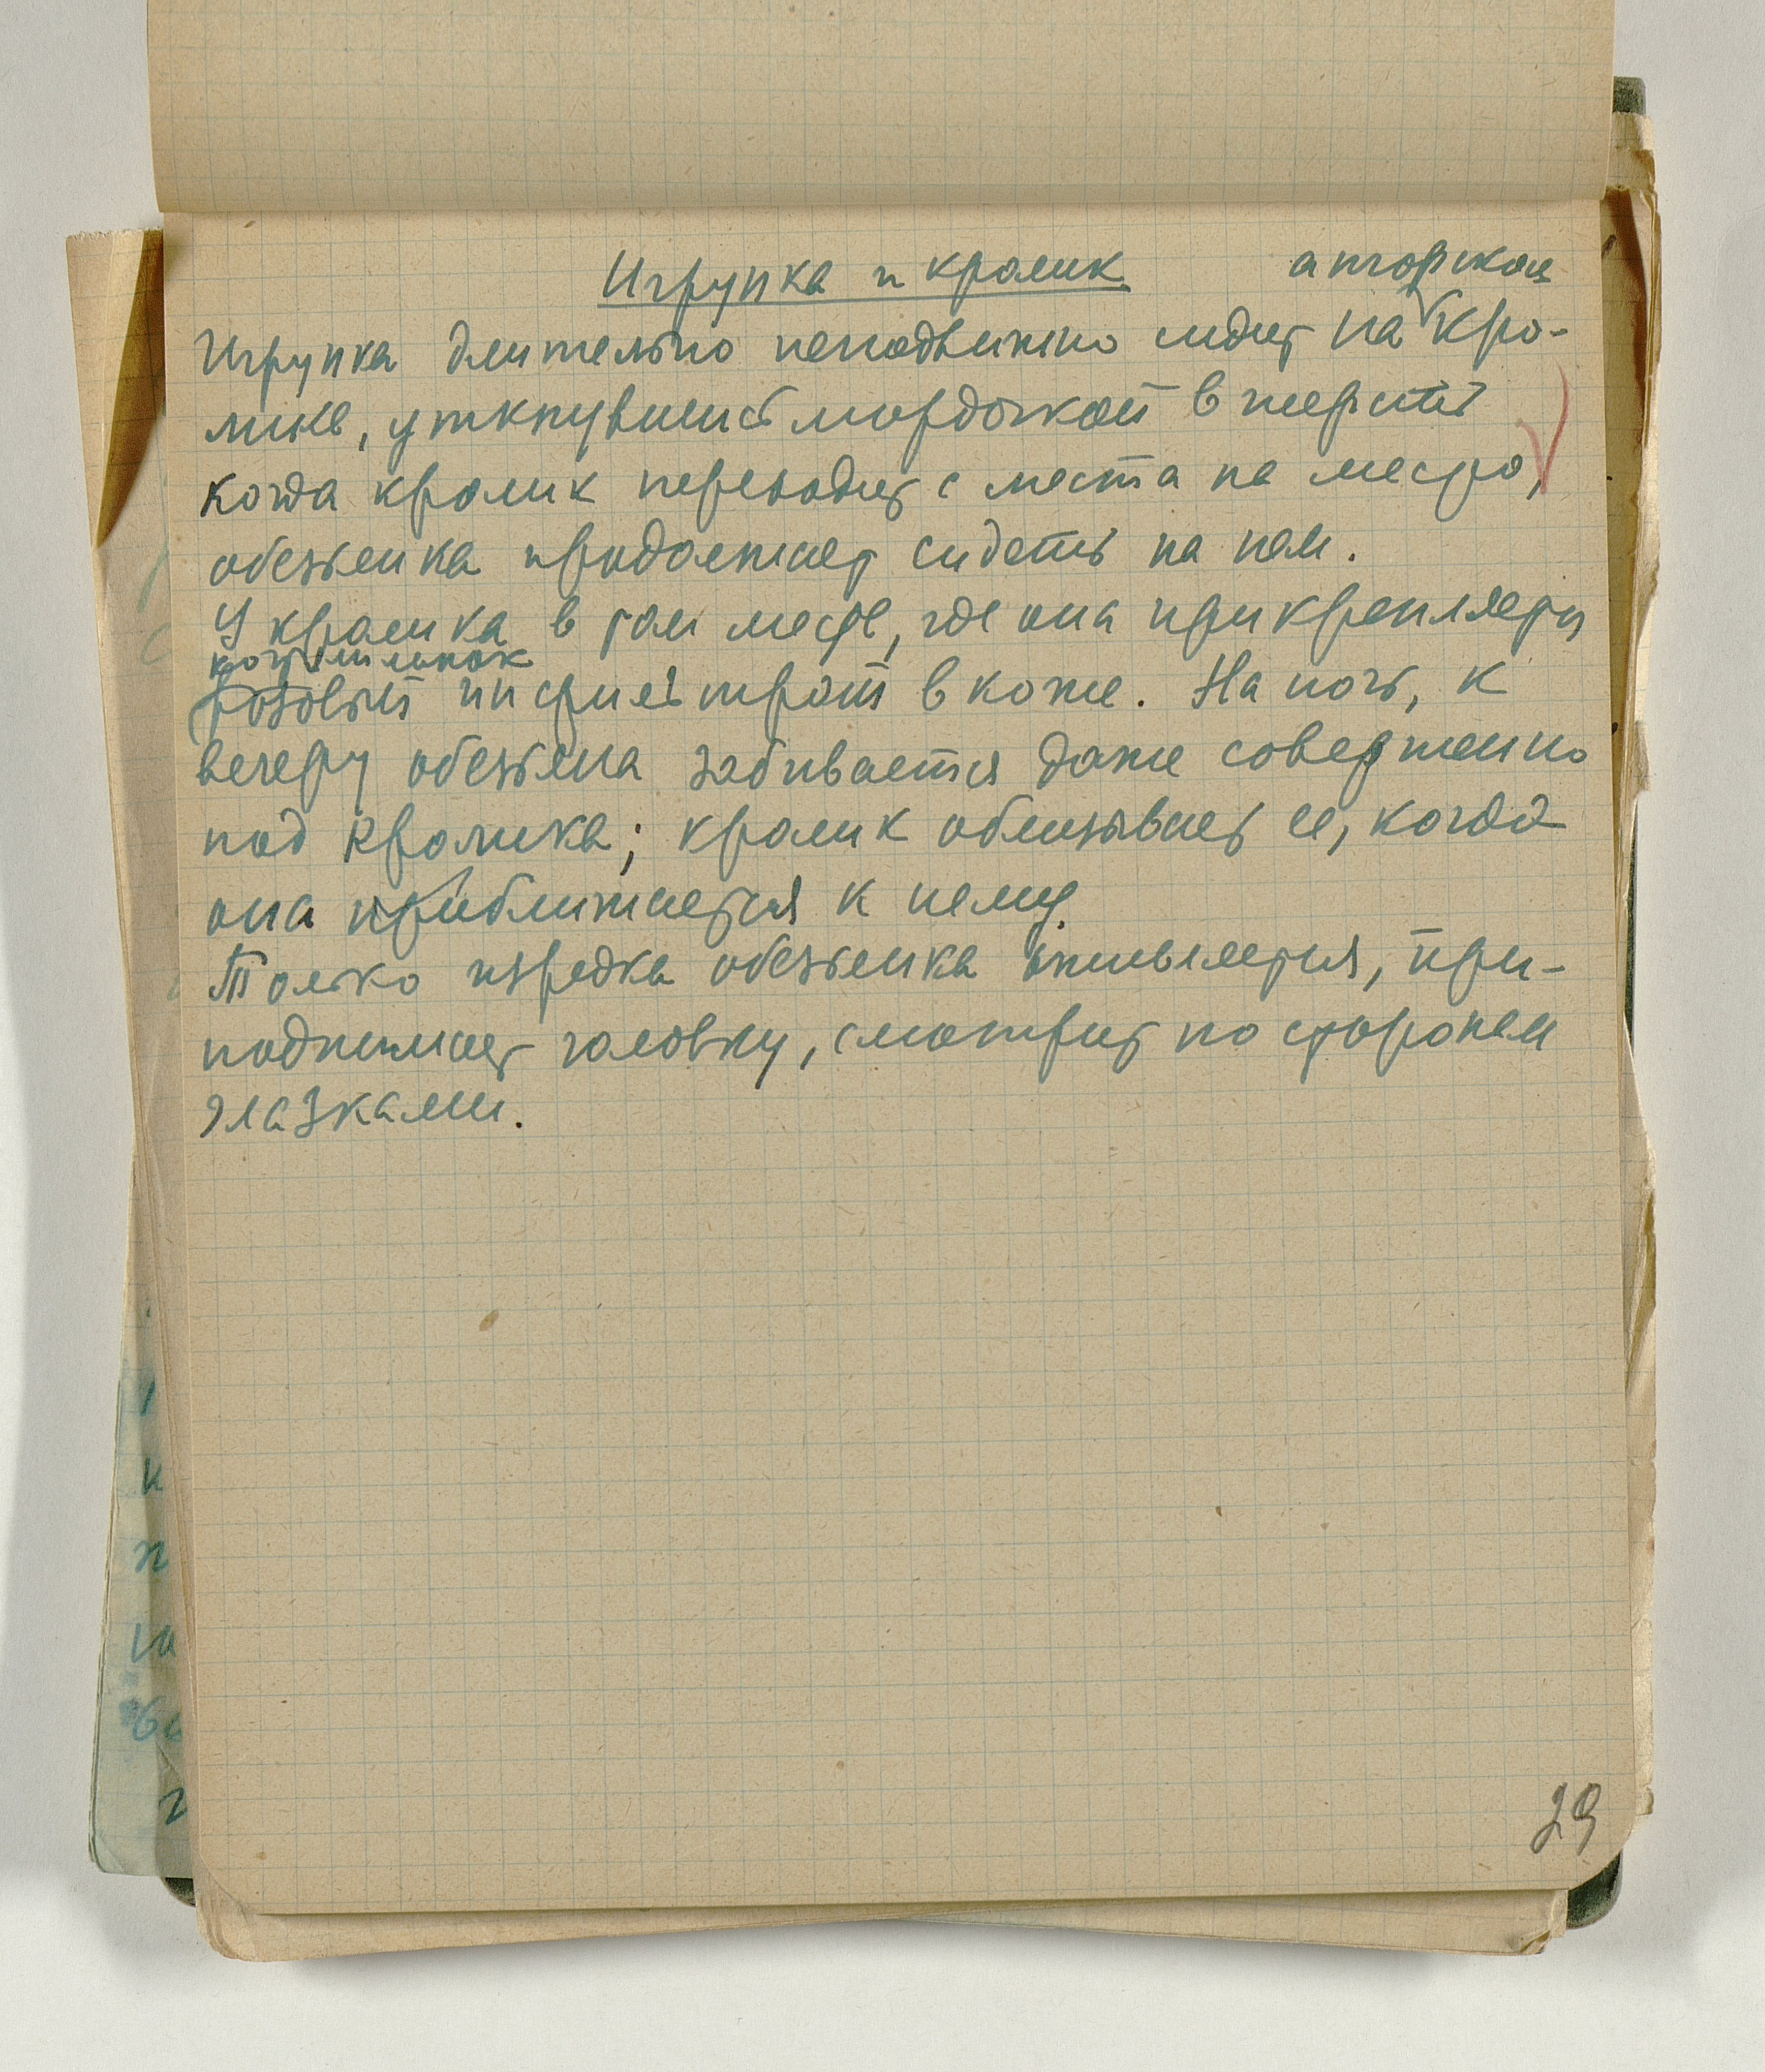 Игрунка и кролик
ангорском
Игрунка длительно неподвижно сидит на кро-
лике, уткнувшись мордочкой в шерсть
когда кролик переходит с места на место,
обезьянка продолжает сидеть на нем.
У кролика в том месте, где она прикрепляется
розовый в коже. На ночь, к
вечеру обезьяна забивается даже совершенно
под кролика; кролик облизывает ее, когда
она приближается к нему.
Только изредка обезьянка оживляется, при-
поднимает головку, смотрит по сторонам
глазками.
29